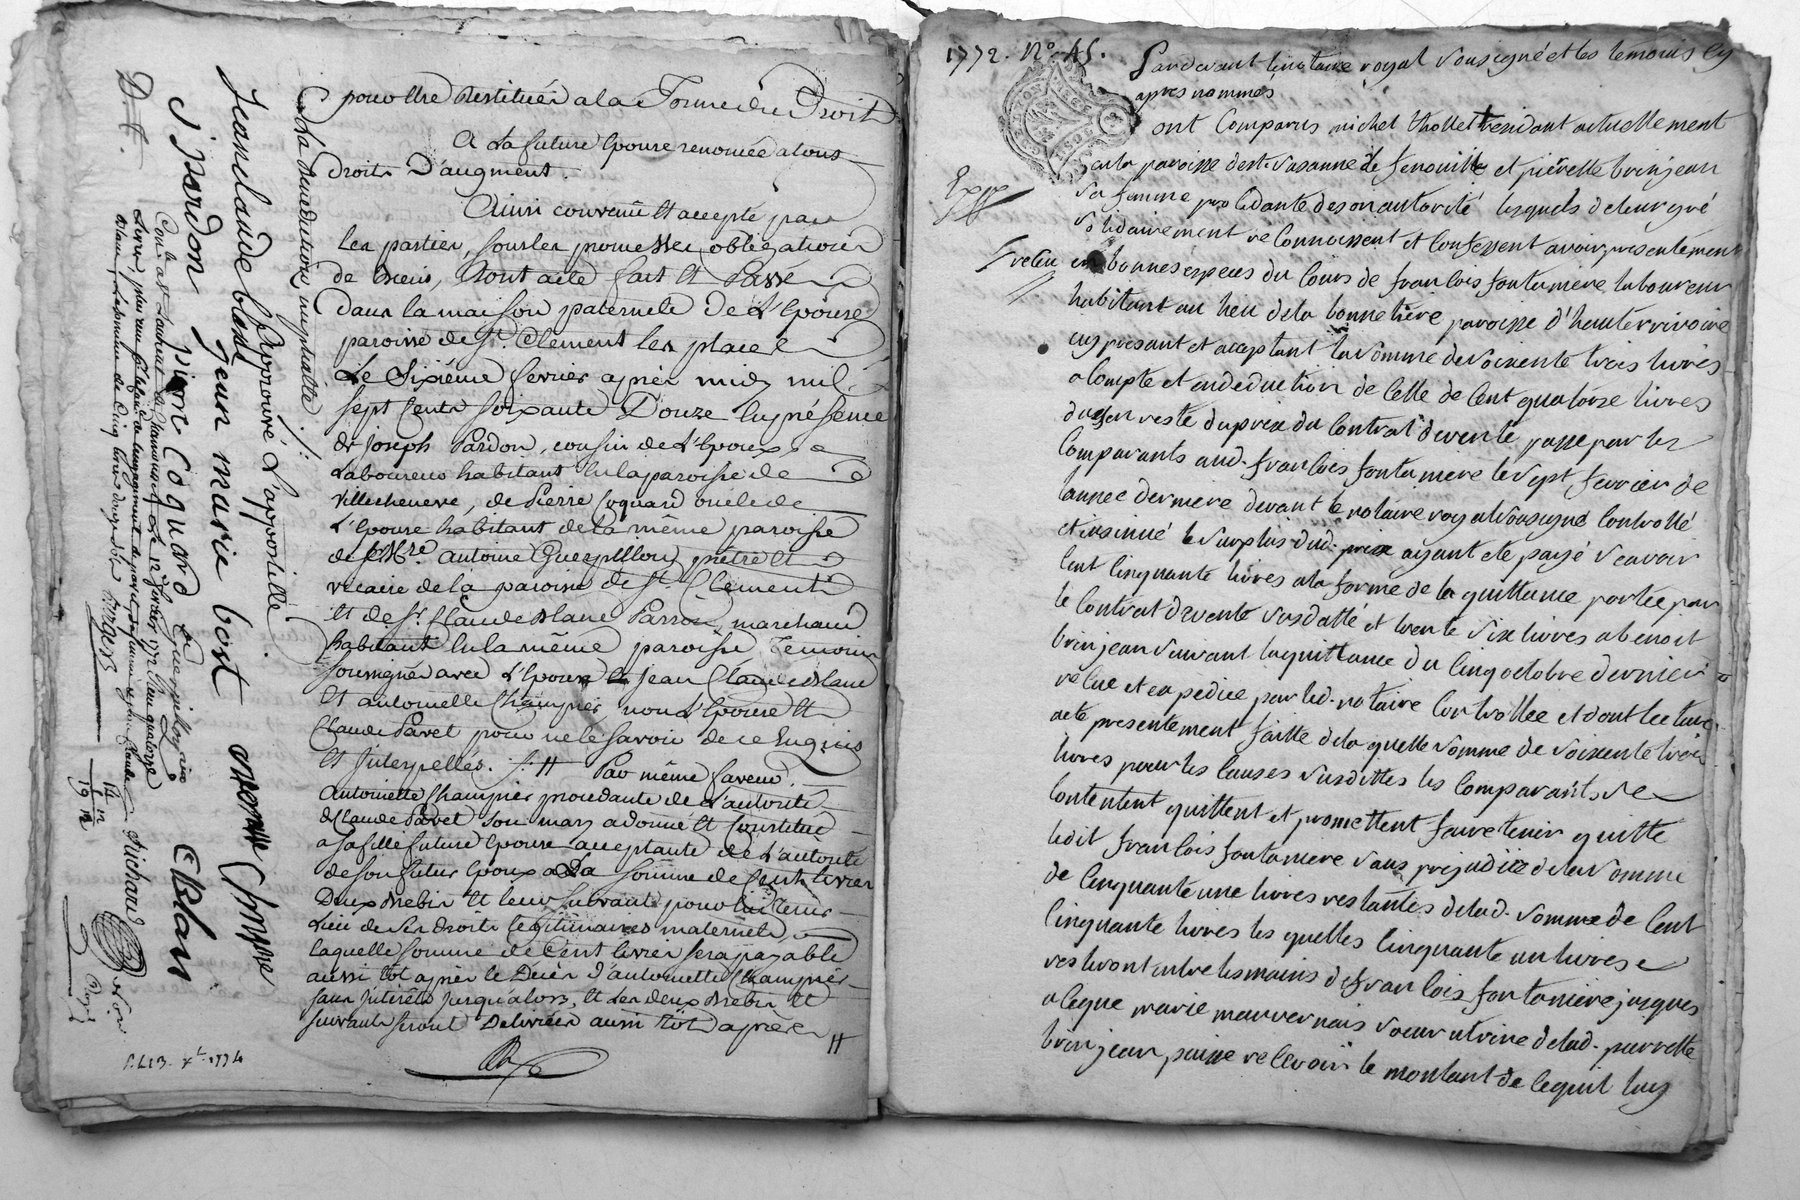 pour être restituée a la forme du Droit
a La future Epouse renoncée a tous
droits D'augment.
Ainsi convenu et accepté par
les parties, sous les promesses, obligations
de biens, Dont acte fait et Passé
dans la maison paternele De L'Epouse
paroisse de St. Clement les places
Le Sixiéme fevrier après midy mil
sept Cents soixante Douze en présence
de joseph Pardon, cousin de L'Epoux
Laboureur habitant en la paroisse de
Villecheneve, de Pierre Coquard oncle de
L'Epouse habitant de la même paroisse
de Mre. antoine Guerpillon prêtre et
vicaire de la paroisse de St. Clement
et de Sr. Claude Blanc Passon, marchand
habitant en la même paroisse Temoins
soussignés avec L'Epoux jean Claude Blanc
et antoinette Champier, non L'Epouse et
Claude Pavet pour ne le savoir de ce Enquis
et Interpellés. /:// Par même faveur
antoinette Champier procedante de L'autorité
de Claude Pavet son mary a donné et Constitué
a sa fille future Epouse acceptante de L'autorité
de son futur Epoux La somme de Cent Livres
Deux brebis et leur suivants pour lui tenir
Lieu de ses droits legitimaires maternels,
laquelle somme de Cent livres sera payable
aussi tôt après le Décès d'antoinette Champier
sans Interêts jusqu'alors, et les deux brebis et
suivants seront Delivrées aussi tôt après //
sa benediction nuptialle /:
Approuvé L'appostille.
Jean claude blanc
jean marie bost
Champier
J pardon
pierre Coquard
Guerpillon vic
C Blan
Michaud
Not. Royal
Con.lé et
a Chamousset Le 12 fevrier 1772 Reçu quatorze
Livres
Dt.
14
19
1772. N° 45.
Pardevant le notaire royal soussigné et les temoins cy
apres nommés
ont Comparus michel thollet residant actuellement
en la paroisse de ste. susanne de fenouille et pierrette brinjean
sa femme procedante de son autorité lesquels de leur gré
solidairement reconnoissent et Confessent avoir presentement
Expe
/ reçu en bonnes especes du Cours de francois fontaniere laboureur
habitant au lieu de la bonnetiere paroisse d'hauterivoire
cy present et acceptant la somme de soixente trois livres
a Compte et en deduction de Celle de Cent quatorze livres
du reste du prix du Contrat de vente passé par les
Comparants aud. francois fontaniere le sept fevrier de
l'année derniere devant le notaire royal soussigné Controllé
et insinué le surplus dud. prix ayant eté payé scavoir
Cent Cinquante livres a la forme de la quittance portée par
le Contrat de vente susdatté et trente six livres a benoit
brinjean suivant la quittance du Cinq octobre dernier
reçue et expediée par led. notaire Controllée et dont lecture a
eté presentement faitte de la quelle somme de soixente trois
livres pour les Causes susdittes les Comparants se
Contentent quittent et promettent faire tenir quitte
ledit francois fontaniere sans prejudice de la somme
de Cinquante une livres restantes de lad. somme de Cent
Cinquante livres les quelles Cinquante un livres
resteront entre les mains de francois fontaniere jusques
a Ceque marie mauvernais soeur uterine de lad. pierrette
brinjean puisse recevoir le montant de Cequil luy